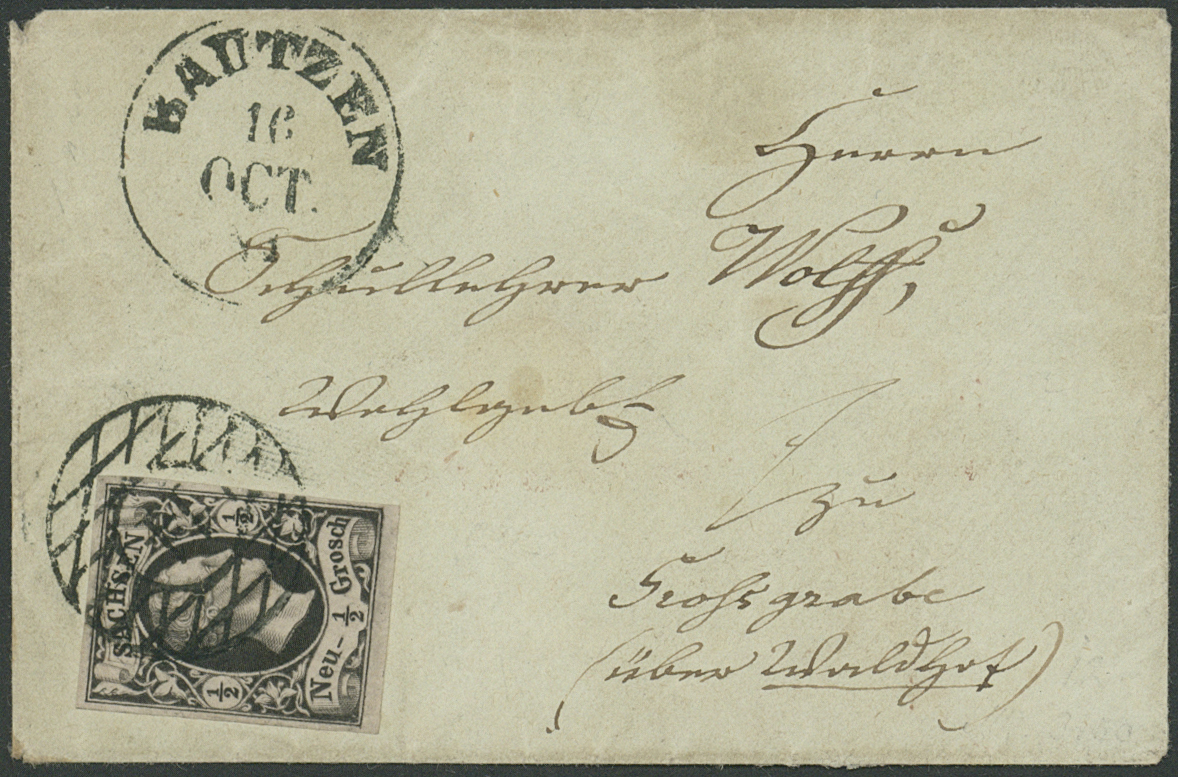 BAUTZEN
16
OCT.
Herrn
Schullehrer Wolff,
Wohlgeb
zu
Grossgrabe
(über Waldhof)
SACHSEN
1/2
1/2
Neu- 1/2 Grosch